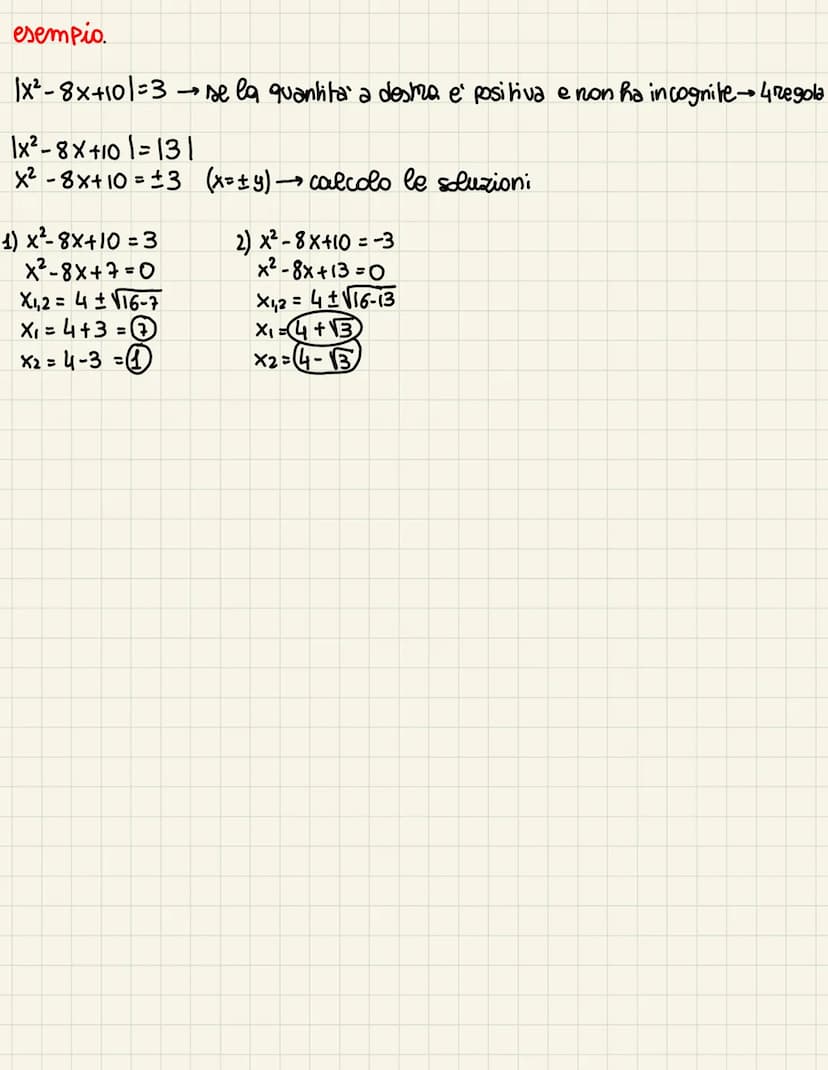 esempio.
|x²-8x+10|=3 → se la quantita' a destra e' positiva e non ha incognite → 4 regola
|x²-8x+10|=|3|
x²-8x+10=±3 (x=±y) → calcolo le soluzioni
1) x²-8x+10=3
x²-8x+7=0
x₁,₂ = 4±√16-7
x₁ = 4+3 = 7
x₂ = 4-3 = 1
2) x²-8x+10=-3
x²-8x+13=0
x₁,₂ = 4±√16-13
x₁ = 4+√3
x₂ = 4-√3